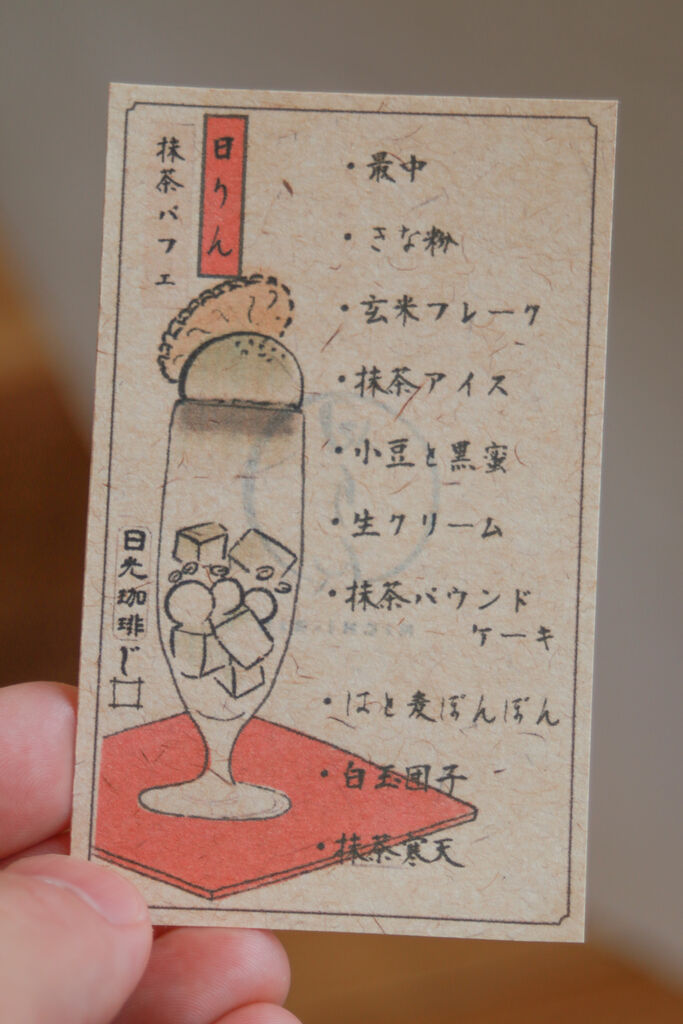 日りん
抹茶パフェ
・最中
・きな粉
・玄米フレーク
・抹茶アイス
・小豆と黒蜜
・生クリーム
・抹茶パウンド
ケーキ
・はと麦ぽんぽん
・白玉団子
・抹茶寒天
日光珈琲